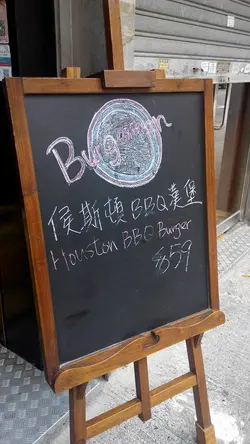 Burgeman
侯斯頓 BBQ 漢堡
Houston BBQ Burger
$59